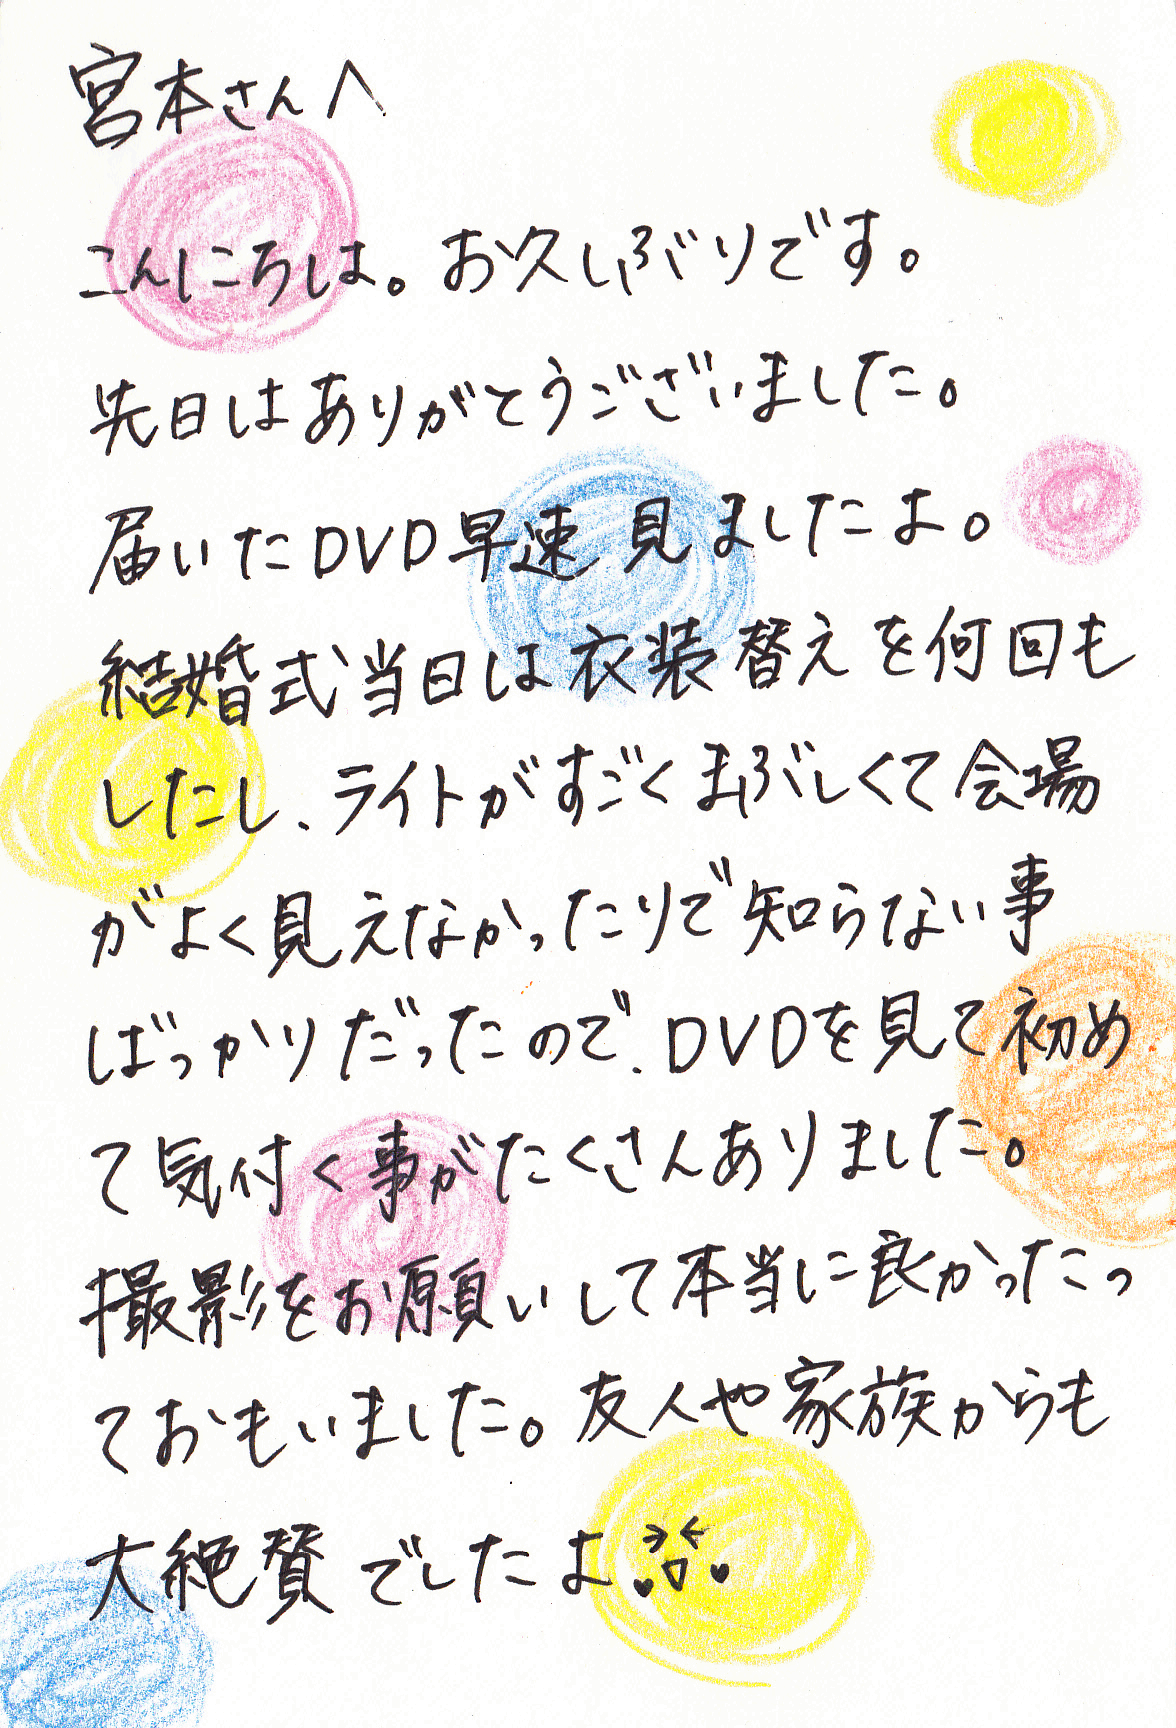 宮本さんへ
こんにちは。お久しぶりです。
先日はありがとうございました。
届いたDVD早速見ましたよ。
結婚式当日は衣装替えを何回も
したし、ライトがすごくまぶしくて会場
がよく見えなかったりで知らない事
ばっかりだったので、DVDを見て初め
て気付く事がたくさんありました。
撮影をお願いして本当に良かったっ
ておもいました。友人や家族からも
大絶賛でしたよ